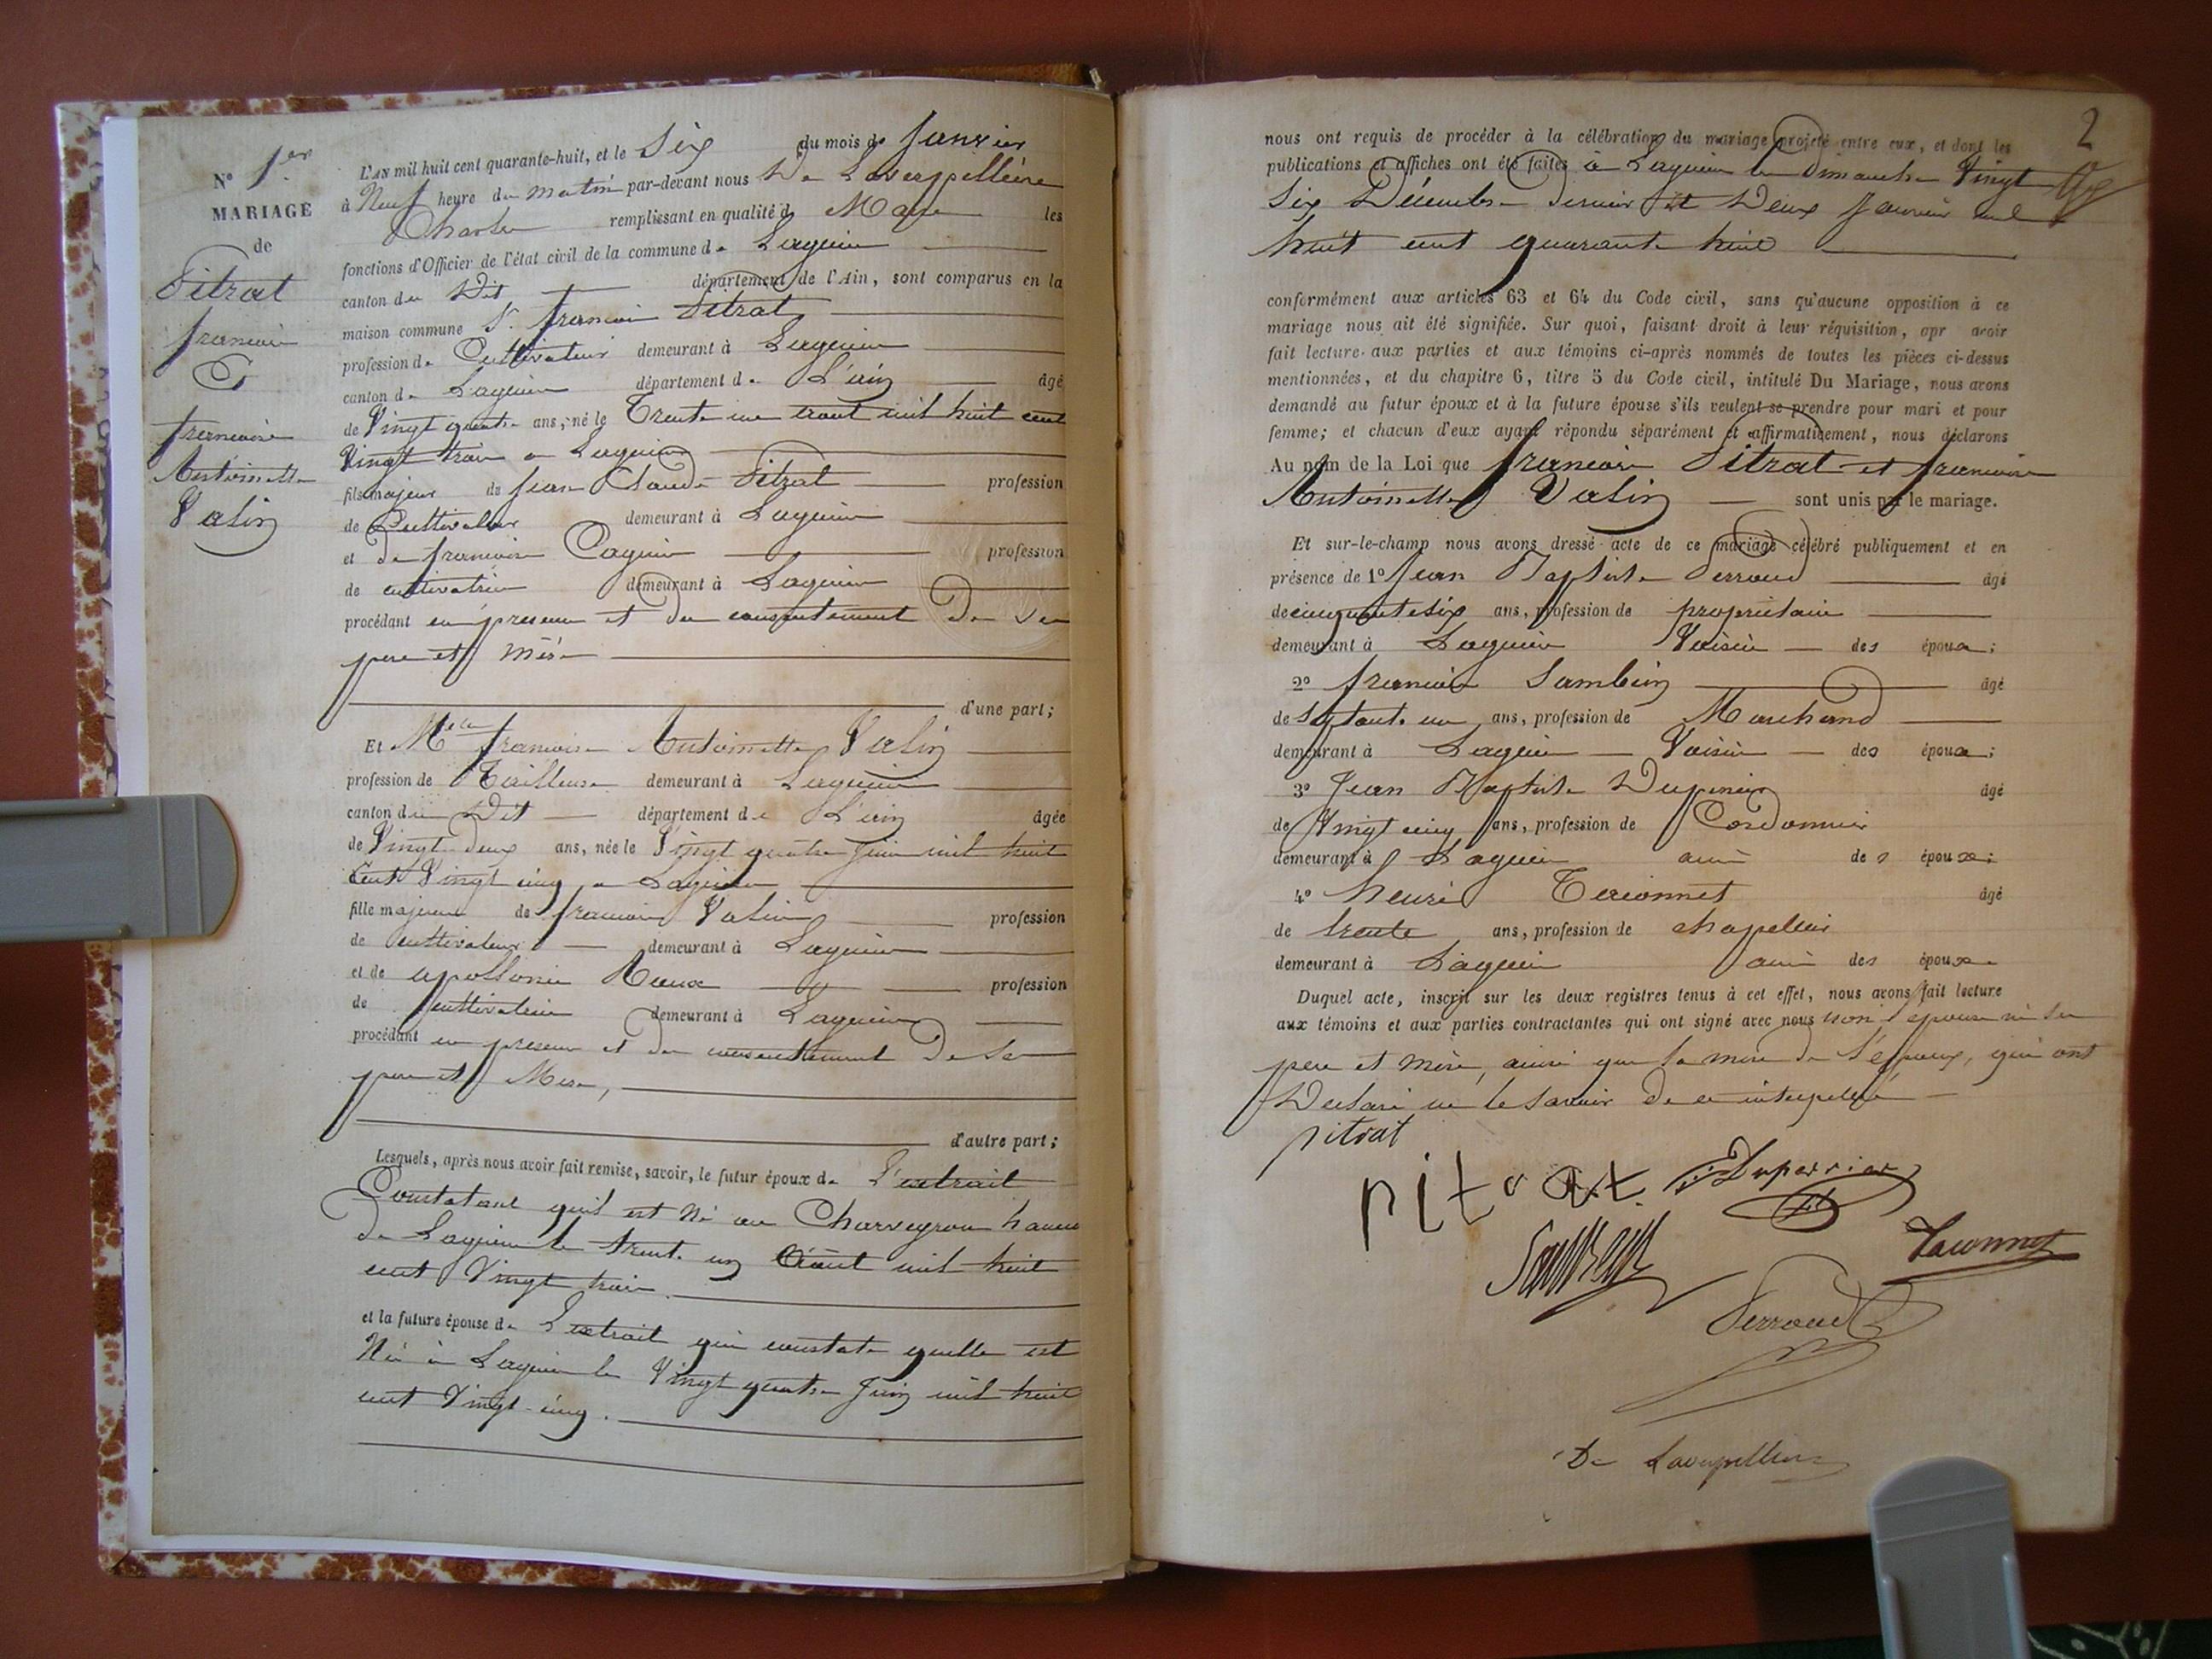 N° 1er
MARIAGE
de
Pitrat
francois
&
francoise
Antoinette
Valin
L'AN mil huit cent quarante-huit, et le Six du mois de Janvier
à Neuf heure du matin par-devant nous De Laverpellière
Charles remplissant en qualité de Maire les
fonctions d'Officier de l'état civil de la commune de Lagnieu
canton du Dit département de l'Ain, sont comparus en la
maison commune Sr. francois Pitrat
profession de Cultivateur demeurant à Lagnieu
canton de Lagnieu département de L'ain âgé
de Vingt quatre ans, né le Trente un aout mil huit cent
Vingt trois a Lagnieu
fils majeur de Jean Claude Pitrat profession
de Cultivateur demeurant à Lagnieu
et de francoise profession
de cultivatrice demeurant à Lagnieu
procédant en presence et du consentement De Ses
pere et Mère
d'une part;
Et Melle francoise Antoinette Valin
profession de Tailleuse demeurant à Lagnieu
canton du Dit département de L'ain âgée
de Vingt-deux ans, née le Vingt quatre Juin mil huit
Cent Vingt cinq a Lagnieu
fille majeure de francois Valin profession
de cultivateur demeurant à Lagnieu
et de apollonie Roux profession
de cultivatrice demeurant à Lagnieu
procédant en presence et du consentement De Ses
pere et Mere,
d'autre part;
Lesquels, après nous avoir fait remise, savoir, le futur époux de L'extrait
Constatant quil est Né au Charveyron hameau
de Lagnieu le trente un Août mil huit
cent Vingt trois.
et la future épouse de L'extrait qui constate quelle est
Née à Lagnieu le Vingt quatre Juin mil huit
cent Vingt-cinq.
2
nous ont requis de procéder à la célébration du mariage projeté entre eux, et dont les
publications et affiches ont été faites à Lagnieu les Dimanche Vingt
Six Décembre dernier et Deux Janvier mil
huit cent quarante huit
conformément aux articles 63 et 64 du Code civil, sans qu'aucune opposition à ce
mariage nous ait été signifiée. Sur quoi, faisant droit à leur réquisition, apr avoir
fait lecture aux parties et aux témoins ci-après nommés de toutes les pièces ci-dessus
mentionnées, et du chapitre 6, titre 5 du Code civil, intitulé Du Mariage, nous avons
demandé au futur époux et à la future épouse s'ils veulent se prendre pour mari et pour
femme; et chacun d'eux ayant répondu séparément et affirmativement, nous déclarons
Au nom de la Loi que francois Pitrat et francoise
Antoinette Valin sont unis par le mariage.
Et sur-le-champ nous avons dressé acte de ce mariage célébré publiquement et en
présence de 1° Jean Baptiste Perroud âgé
de cinquante six ans, profession de propriétaire
demeurant à Lagnieu Voisin des époux;
2° francois Sambin âgé
de Septante un ans, profession de Marchand
demeurant à Lagnieu Voisin des époux;
3° Jean Baptiste Duperier âgé
de Vingt cinq ans, profession de Cordonnier
demeurant à Lagnieu ami des époux;
4° henri Taconnet âgé
de trente ans, profession de chapelier
demeurant à Lagnieu ami des époux.
Duquel acte, inscrit sur les deux registres tenus à cet effet, nous avons fait lecture
aux témoins et aux parties contractantes qui ont signé avec nous non l'épouse ni Ses
pere et mère, ainsi que la mere de l'époux, qui ont
Declaré ne le savoir de ce interpellé
pitrat
pitrat Duperrier
Sambin
Taconnet
Perroud
De Laverpilliere